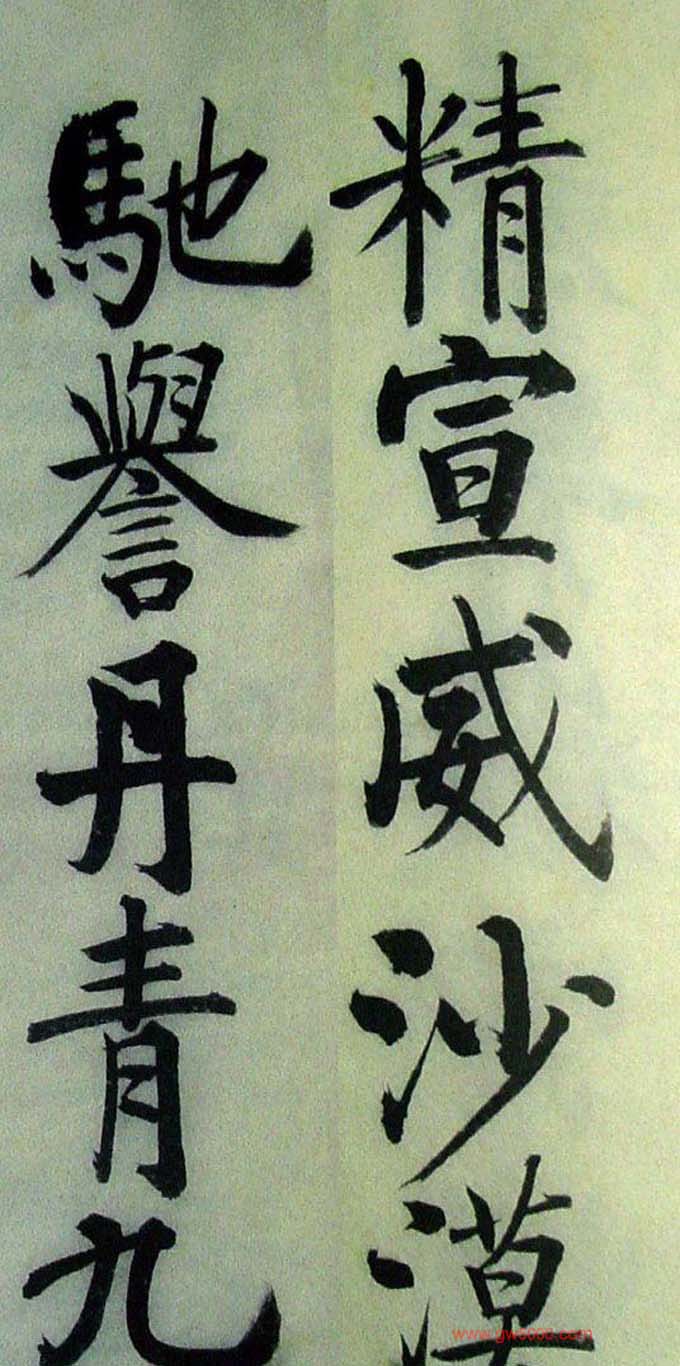 精宣威沙漠
馳譽丹青九
www.gw8000.com